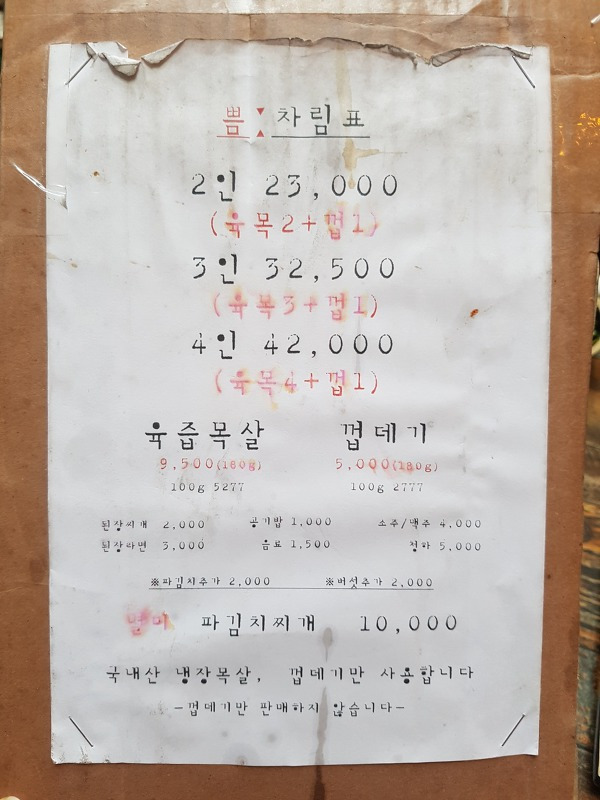 쁨: 차림표
2인 23,000
(육목2+껍1)
3인 32,500
(육목3+껍1)
4인 42,000
(육목4+껍1)
육즙목살 껍데기
9,500(180g) 5,000(180g)
100g 5277 100g 2777
된장찌개 2,000 공기밥 1,000 소주/맥주 4,000
된장라면 3,000 음료 1,500 청하 5,000
※파김치추가 2,000 ※버섯추가 2,000
별미 파김치찌개 10,000
국내산 냉장목살, 껍데기만 사용합니다
-껍데기만 판매하지 않습니다-